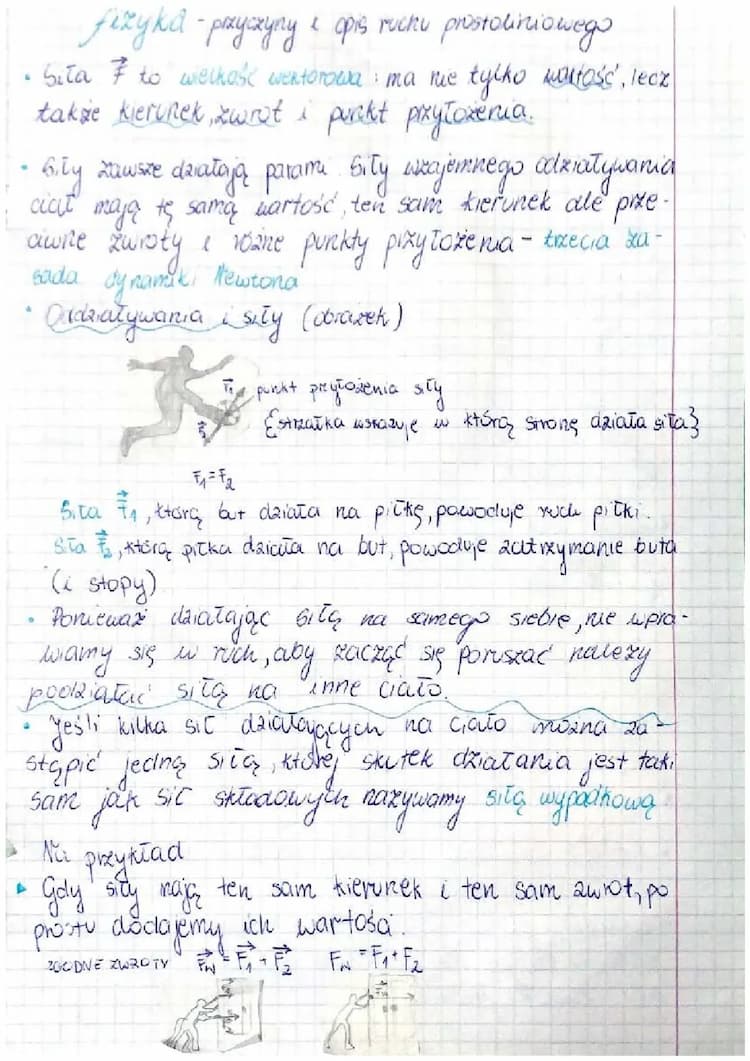 fizyka - przyczyny i opis ruchu prostoliniowego
• Siła F⃗ to wielkość wektorowa: ma nie tylko wartość, lecz
także kierunek, zwrot i punkt przyłożenia.
• Siły zawsze działają parami. Siły wzajemnego odziaływania
ciał mają tę samą wartość, ten sam kierunek ale prze-
ciwne zwroty i różne punkty przyłożenia - trzecia za-
sada dynamiki Newtona
• Oddziaływania i siły (obrazek)
F⃗₁ punkt przyłożenia siły
F⃗₂ {strzałka wskazuje w którą stronę działa siła}
F₁=F₂
Siła F⃗₁, którą but działa na piłkę, powoduje ruch piłki.
Siła F⃗₂, którą piłka działa na but, powoduje zatrzymanie buta
(i stopy)
• Ponieważ działając siłą na samego siebie, nie wpra-
wiamy się w ruch, aby zacząć się poruszać należy
podziałać siłą na inne ciało.
• Jeśli kilka sił działających na ciało można za-
stąpić jedną siłą, której skutek działania jest taki
sam jak sił składowych nazywamy siłą wypadkową
Na przykład
Gdy siły mają ten sam kierunek i ten sam zwrot, po
prostu dodajemy ich wartości.
ZGODNE ZWROTY F⃗w = F⃗₁ + F⃗₂ Fw = F₁ + F₂